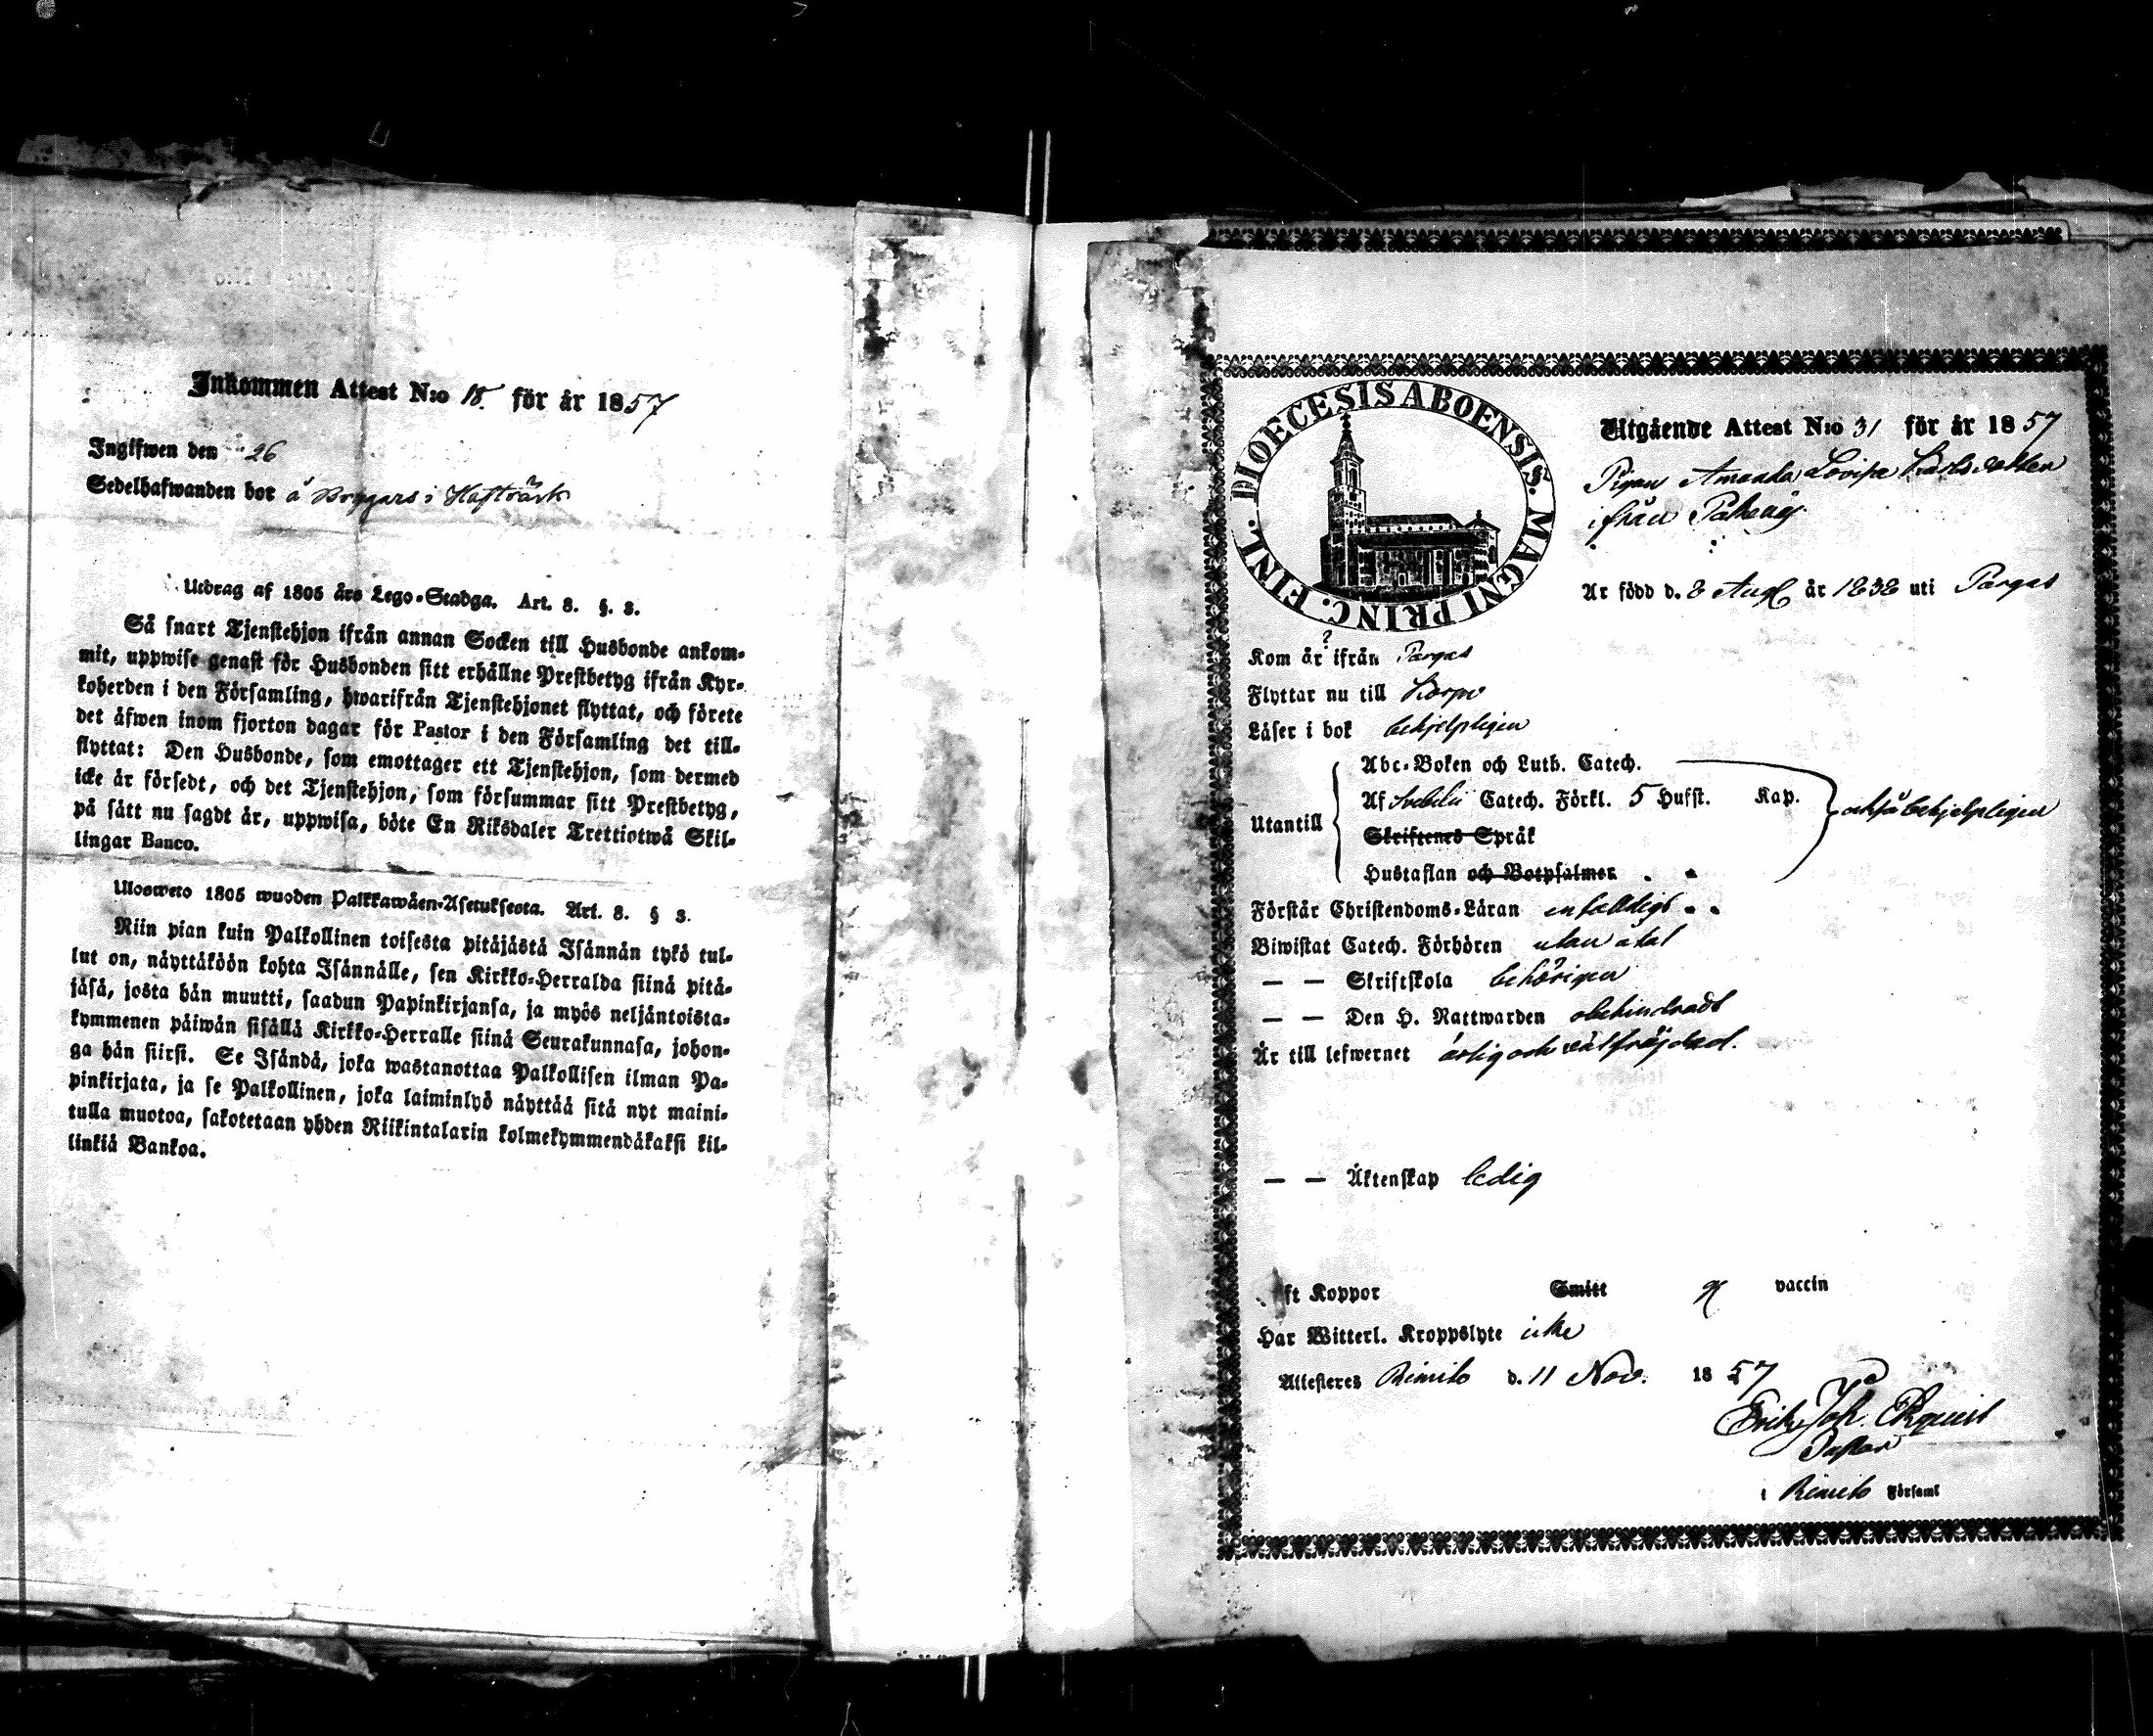 Inkommen Attest N:o 18. för år 1857
Ingifwen den 26
Sedelhafwanden bor å Bryggars i
Utdrag af 1805 års Lego-Stadga. Art. 8. §. 3.
Så snart Tjenstehjon ifrån annan Socken till Husbonde ankom-
mit, uppwise genast för Husbonden sitt erhållne Prestbetyg ifrån Kyr-
koherden i den Församling, hwarifrån Tjenstehjonet flyttat, och förete
det äfwen inom fjorton dagar för Pastor i den Församling det till-
flyttat: Den Husbonde, som emottager ett Tjenstehjon, som dermed
icke är försedt, och det Tjenstehjon, som försummar sitt Prestbetyg,
på sätt nu sagdt är, uppwisa, böte En Riksdaler Trettiotwå Skil-
lingar Banco.
Ulosweto 1805 wuoden Palkkawäen-Asetuksesta. Art. 8. § 3.
Niin pian kuin Palkollinen toisesta pitäjästä Isännän tykö tul-
lut on, näyttäköön kohta Isännälle, sen Kirkko-Herralda siinä pitä-
jäsä, josta hän muutti, saadun Papinkirjansa, ja myös neljäntoista-
kymmenen päiwän sisällä Kirkko-Herralle siinä Seurakunnasa, johon-
ga hän siirsi. Se Isändä, joka wastanottaa Palkollisen ilman Pa-
pinkirjata, ja se Palkollinen, joka laiminlyö näyttää sitä nyt maini-
tulla muotoa, sakotetaan yhden Riikintalarin kolmekymmendäkaksi kil-
linkiä Bankoa.
DIOECESIS ABOENSIS. MAGNI PRINC. FINL.
Utgående Attest N:o 31 för år 1857
Pigan Amanda Lovisa Karlsdotter
ifrån
Är född d. 8 Aug är 1838 uti Pargas
Kom år ? ifrån Pargas
Flyttar nu till Korpo
Läser i bok behjelpligen
Abc-Boken och Luth. Catech.
Utantill Af Svebelii Catech. Förkl. 5 Hufst. Kap. också behjelpligen
Skriftenes Språk
Hustaflan och Botpsalmer
Förstår Christendoms-Läran enfaldigt
Biwistat Catech. Förhören utan åtal
— — Skriftskola behörigen
— — Den H. Nattwarden obehindradt
Är till lefwernet ärlig och välfräjdad.
— — Äktenskap ledig
ft Koppor Smitt vaccin
Har Witterl. Kroppslyte icke
Attesteras Rimito d. 11 Nov. 1857
Erik Joh. Ekquist
Pastor
i Rimito Församl